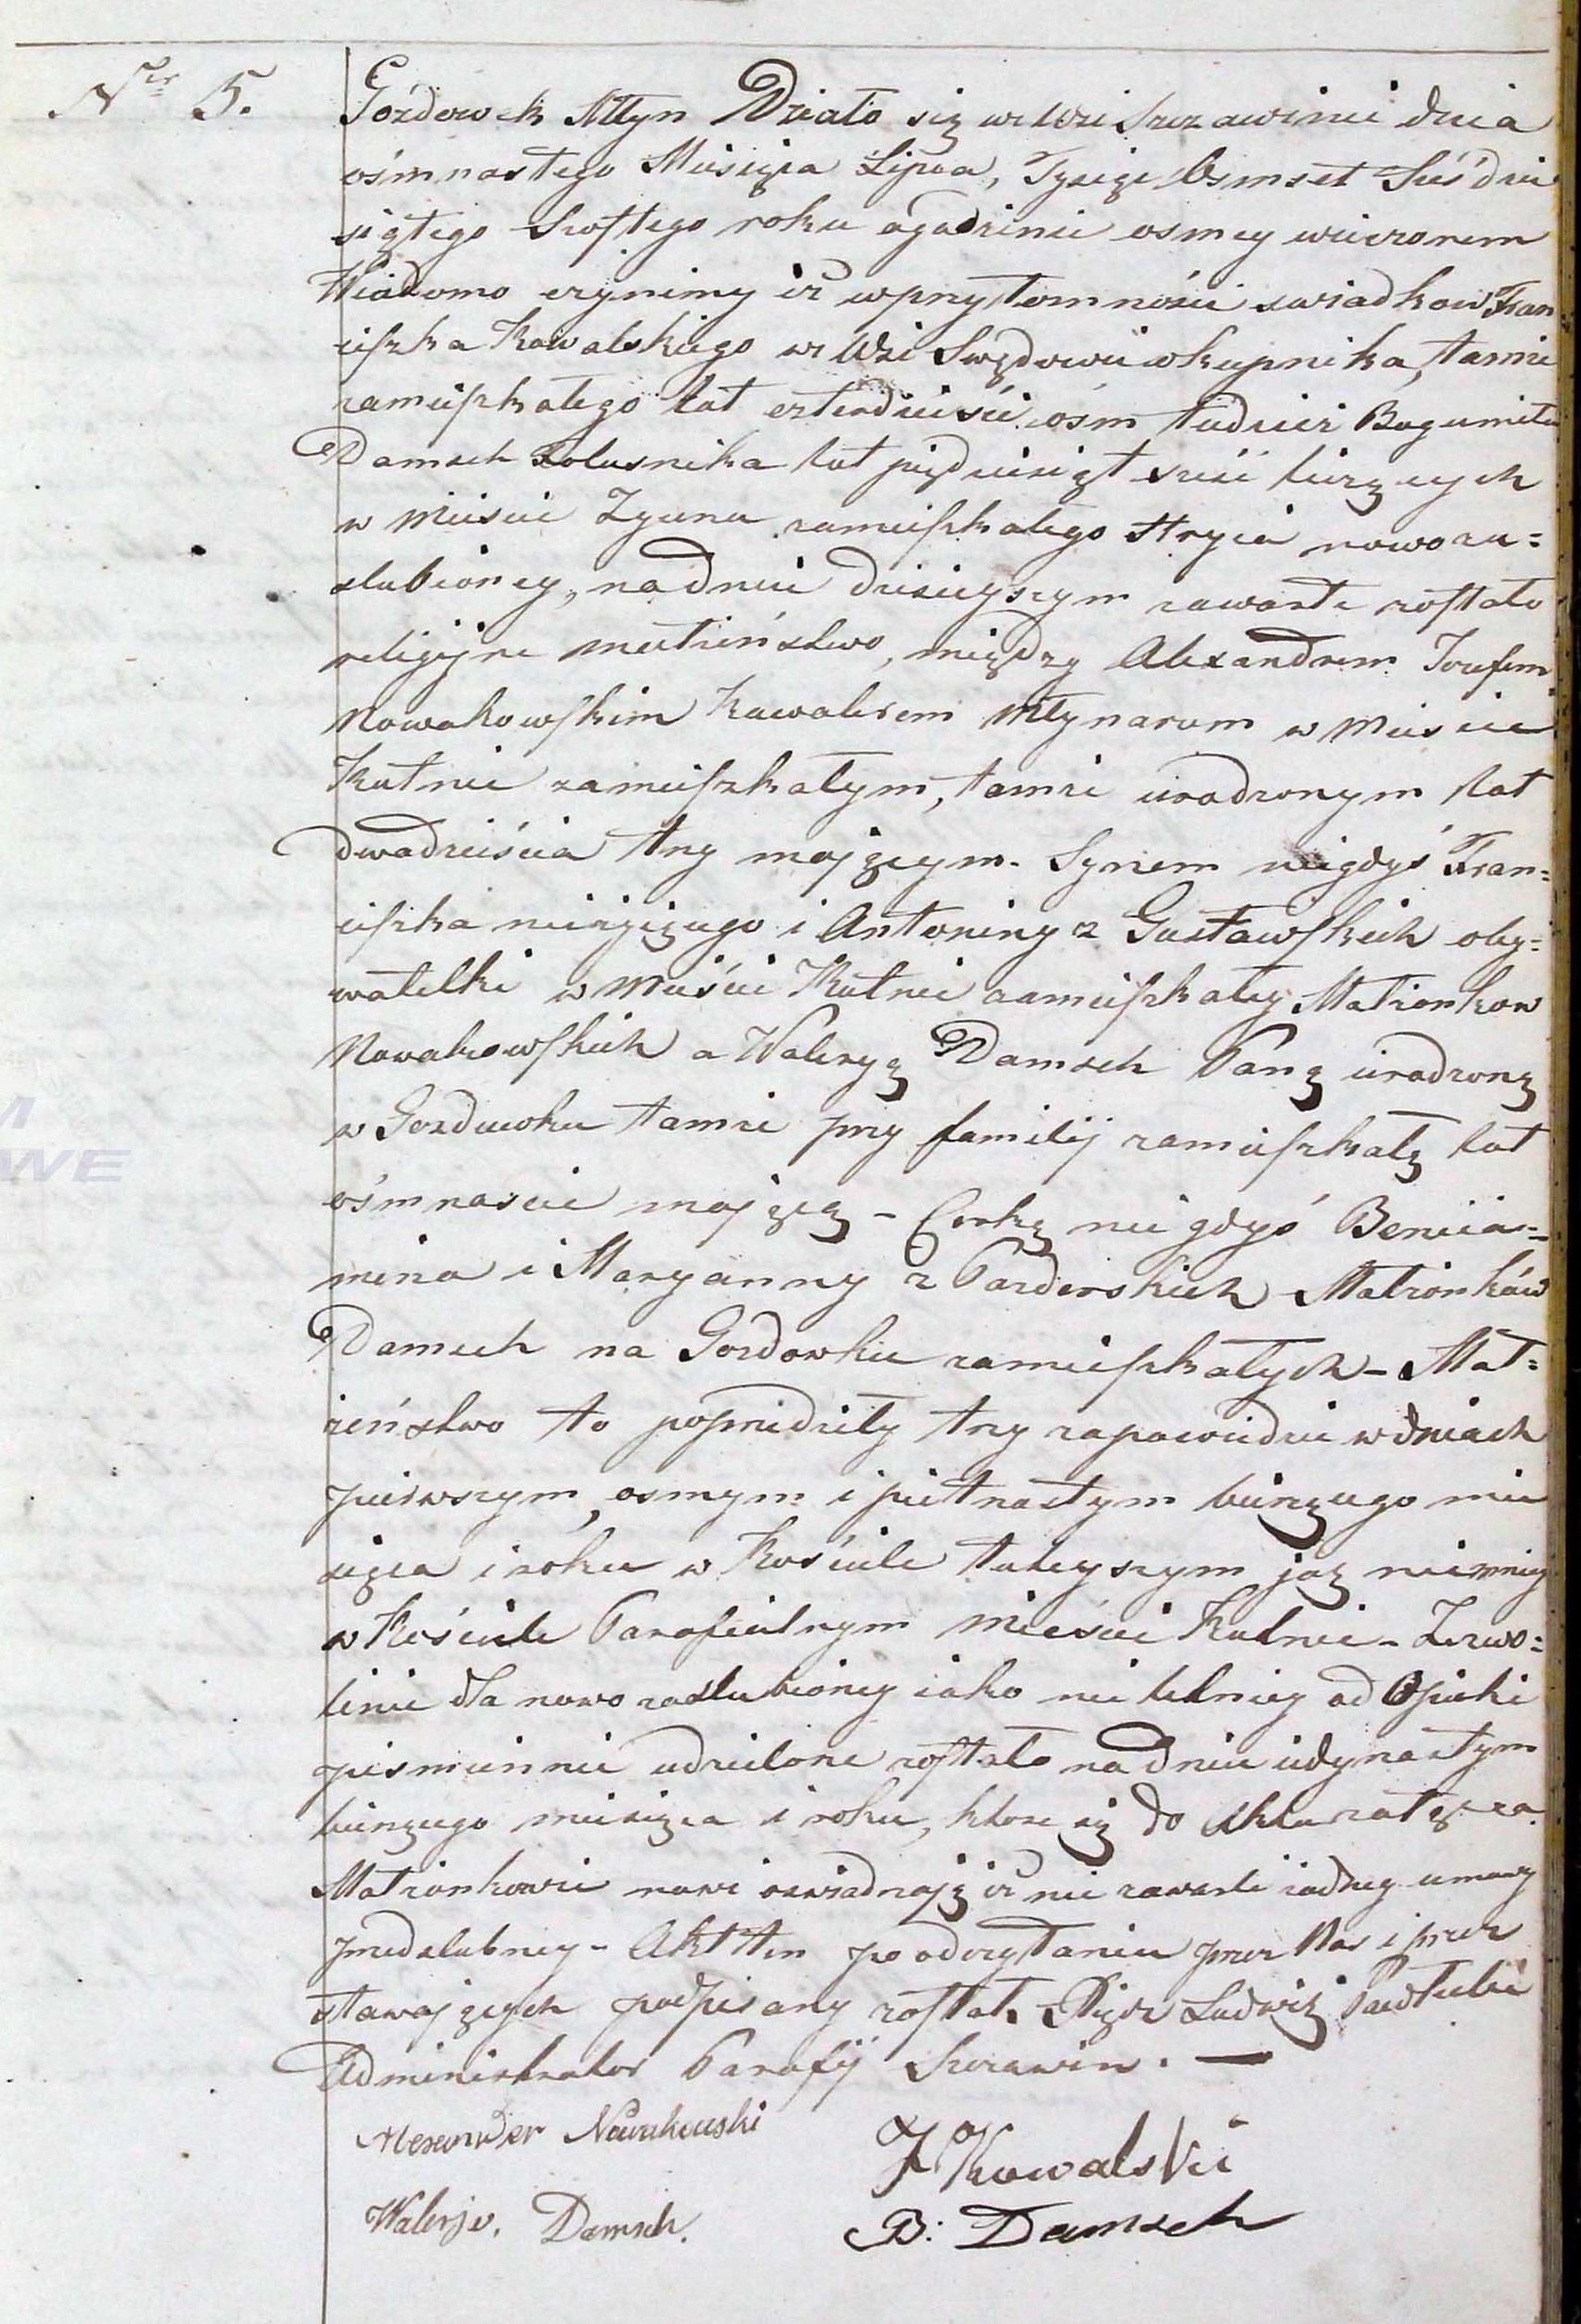 Nr 5.
Gózdowek Młyn Działo się we Wsi Szczawinie dnia
ósmnastego Miesiąca Lipca, Tysiąc Osmset Sześćdzie
siątego Szostego roku o godzinie osmey wieczorem
Wiadomo czynimy iż w przytomności swiadkow Fran
ciszka Kowalskiego we Wsi okupnika, tamże
zamieszkałego lat czterdzieści ośm tudzież Bogumiła
Damsch Kolusnika lat piędziesiąt sześć liczących
w Mieście Zgierzu zamieszkałego Stryia nowoza=
slubioney, na dniu dzisieyszym zawarte zostało
religijne małżeństwo, między Alexandrem Jozefem
Nowakowskim Kawalerem Młynarzem w Mieście
Kutnie zamieszkałym, tamże urodzonym lat
dwadzieścia trzy mającym. Synem niegdyś Fran=
ciszka nieżyiącego i Antoniny z Gustawskich oby=
watelki w Mieście Kutnie zamieszkałey Małżonkow
Nowakowskich a Waleryą Damsch Panną urodzoną
w Gozdowku tamże przy familij zamieszkałą lat
ośmnascie mającą - Corką niegdyś Beniia=
mina i Maryanny z Małżonków
Damsch na Gozdowku zamieszkałych - Mał=
żeństwo to poprzedziły trzy zapowiedzie w dniach
pierwszym, osmym i pietnastym bieżącego mie
siąca i roku w Kościele tuteyszym jaz niemniey
w Kościele Parafialnym Mieście Kutnie - Zezwo=
lenie dla nowo zaslubioney iako nie letniey od Opieki
pismiennie udzielone zostało na dniu iedynastym
bieżącego miesiąca i roku, ktore się do Aktu załącza.
Małżonkowie nowi oswiadczają iż nie zawarli żadney umowy
przedslubney - Akt ten po odczytaniu przez Nas i przez
stawaiących podpisany został. Xiądz Ludwik
Administrator Parafij Szczawin. —
Alexander Nowakowski
J Kowalski
Walerja. Damsch.
B: Damsch